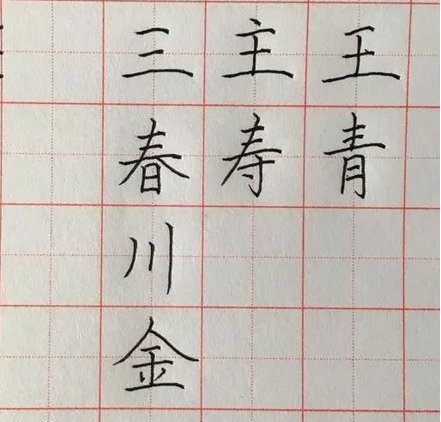 三主王
春寿青
川
金